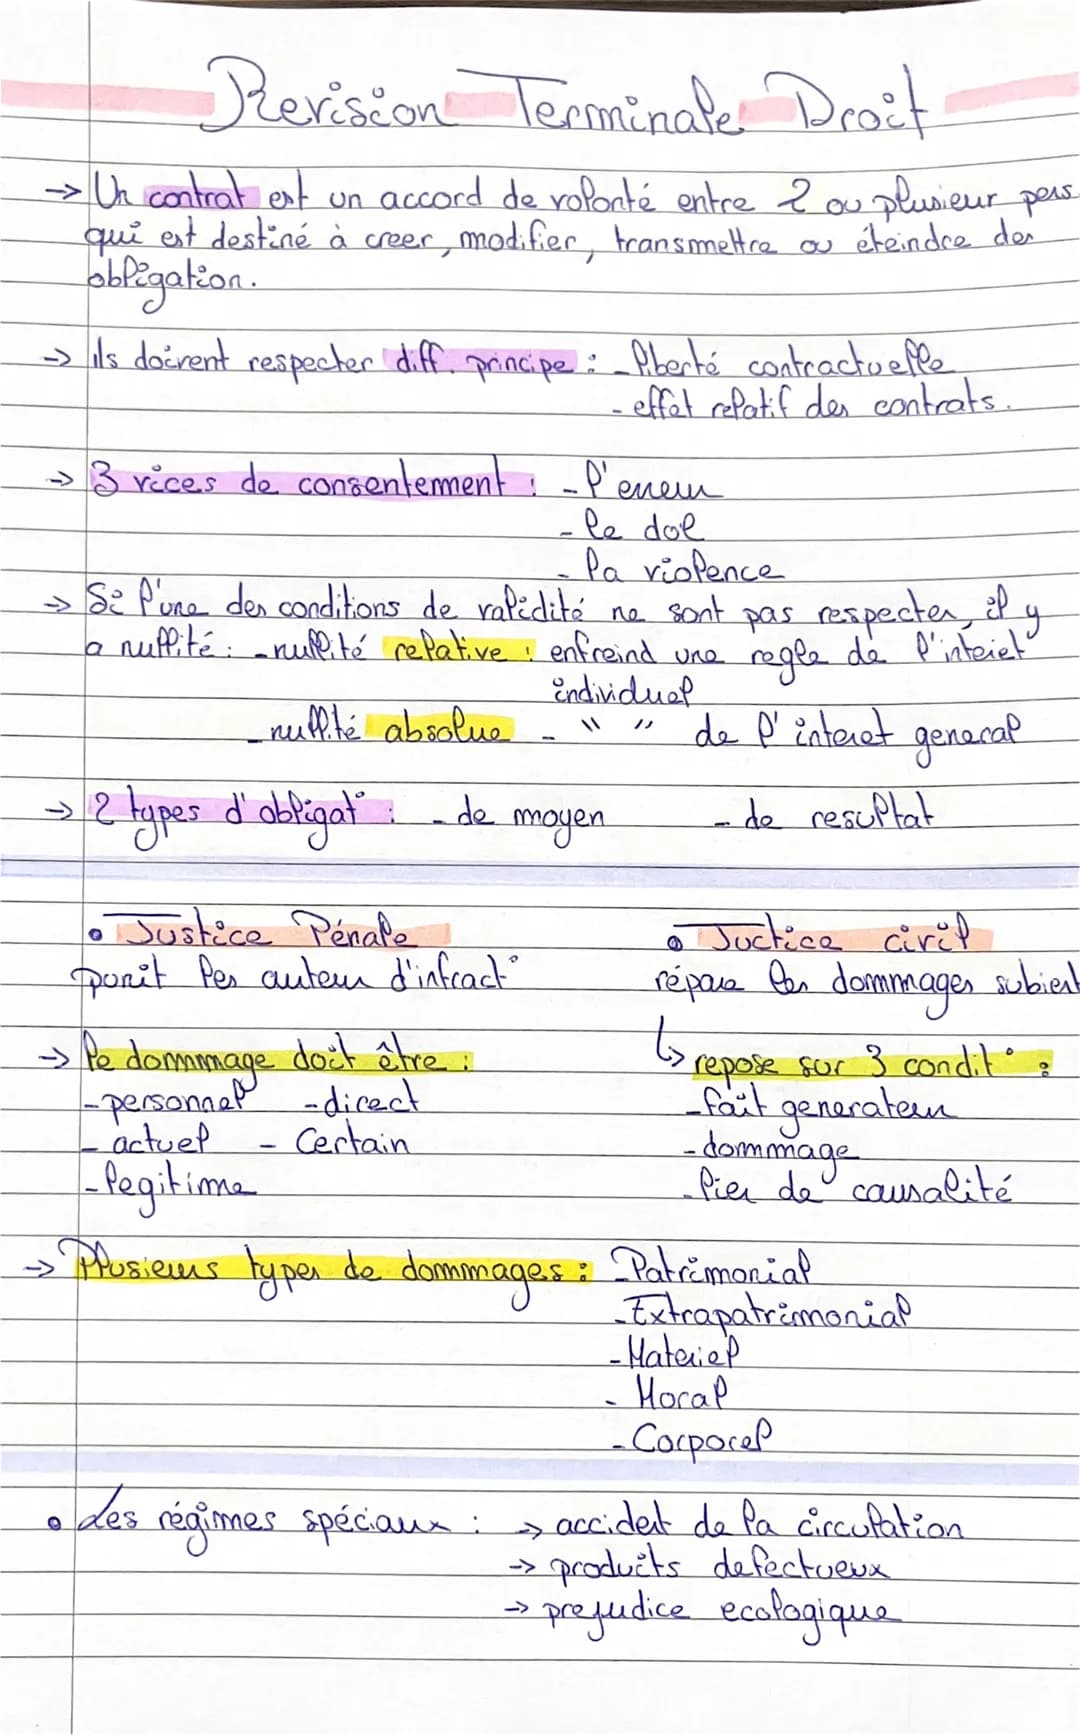 Revision Terminale Droit
-> Un contrat est un accord de volonté entre 2 ou plusieur pers
qui est destiné à creer, modifier, transmettre ou éteindre des
obligation.
-> ils doivent respecter diff. principe : - liberté contractuelle
- effet relatif des contrats.
-> 3 vices de consentement : - l'erreur
- le dol
- la violence
-> Si l'une des conditions de validité ne sont pas respecter, il y
a nullité : - nullité relative : enfreind une regle de l'interiet
individuel
- nullité absolue - " " de l'interet general
-> 2 types d'obligat° : - de moyen - de resultat
• Justice Pénale • Juctice civil
punit les auteur d'infract° répare les dommages subient
-> le dommage doit être : ↳ repose sur 3 condit° :
- personnel - direct - fait generateur
- actuel - Certain - dommage
- legitime - lien de causalité
-> Plusieurs types de dommages : - Patrimonial
- Extrapatrimonial
- Materiel
- Moral
- Corporel
• Les régimes spéciaux : -> accident de la circulation
-> produits defectueux
-> prejudice ecologique